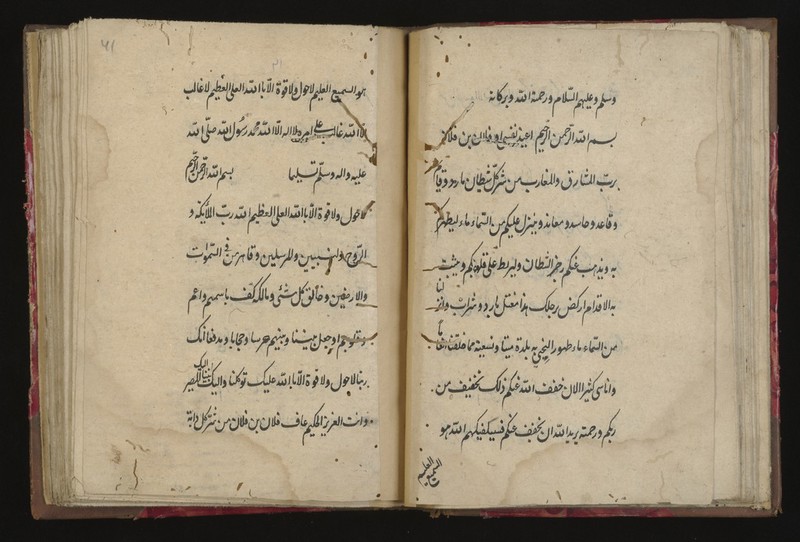 وسلم وعليهم السلام ورحمة الله وبركاته
بسم الله الرحمن الرحيم اعيذ نفسى او فلان بن فلانة
برب المشارق والمغارب من شر كل شيطان مارد وقايم
وقاعد وحاسد ومعاند وينزل عليكم من السماء ماء ليطهركم
به ويذهب عنكم رجز الشيطان وليربط على قلوبكم ويثبت
به الاقدام اركض برجلك هذا مغتسل بارد وشراب وانزلنا
من السماء ماء طهورا لنحيى به بلدة ميتا ونسقيه مما خلقنا انعاما
واناسى كثيرا الان خفف الله عنكم ذلك تخفيف من
ربكم ورحمة يريد الله ان يخفف عنكم فسيكفيكهم الله هو
السميع العليم
۴۱
هو السميع العليم لا حول ولا قوة الا بالله العلى العظيم لا غالب
الا الله غالب على امره لا اله الا الله محمد رسول الله صلى الله
عليه واله وسلم تسليما بسم الله الرحمن الرحيم
لا حول ولا قوة الا بالله العلى العظيم الله رب الملائكة و
الروح والنبيين والمرسلين وقاهر من فى السموات
والارضين وخالق كل شئ ومالكه كف باسهم واعم
وقلوبهم واجعل بيننا وبينهم حرسا وحجابا ومدفعا انك
ربنا لا حول ولا قوة الا بالله عليك توكلنا واليك انبنا واليك المصير
وانت العزيز الحكيم عاف فلان بن فلان من شر كل دابة